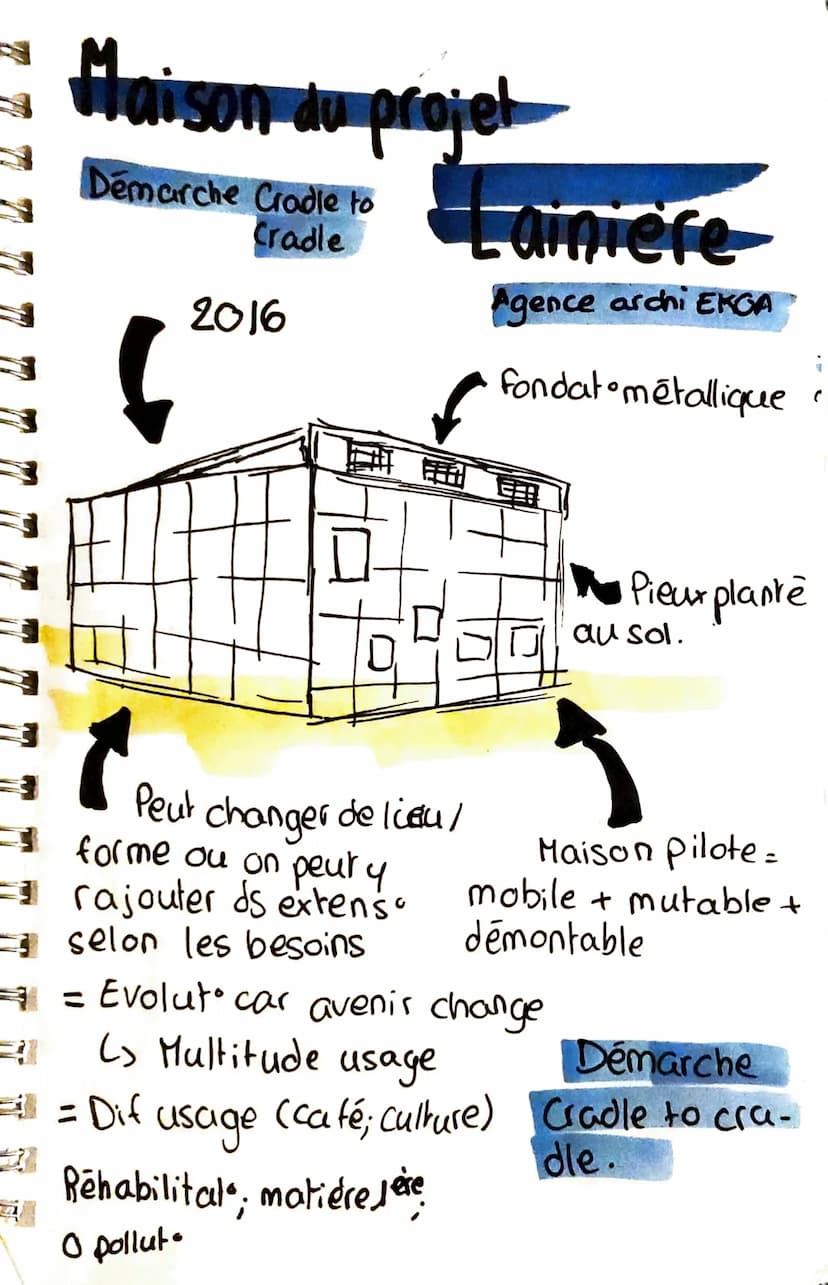 Maison du projet
Lainière
Démarche Cradle to
Cradle
Agence archi EKOA
2016
Fondat° métallique
Pieux planté
au sol.
Peut changer de lieu /
forme ou on peut y
rajouter ds extens°
selon les besoins
Maison pilote =
mobile + mutable +
démontable
= Evolut° car avenir change
↳ Multitude usage
= Dif usage (café; culture)
Démarche
Cradle to cra-
dle.
Réhabilitat°; matière 1ère;
0 pollut°